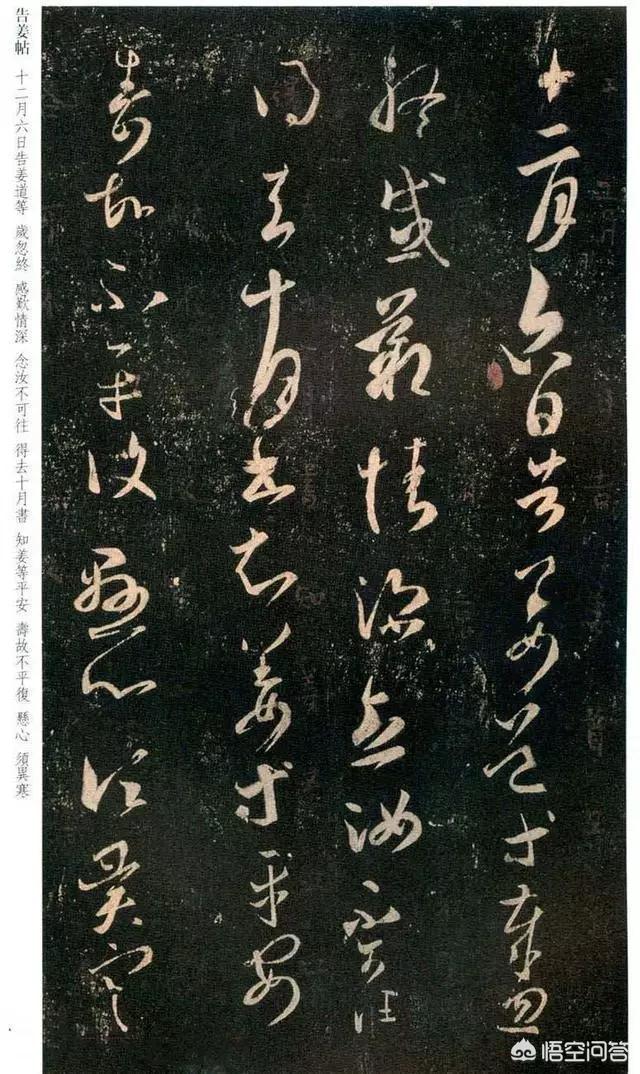 十二月六日告姜道等歲忽
終感歎情深念汝不可往
得去十月書知姜等平安
壽故不平復懸心須異寒
告姜帖 十二月六日告姜道等 歲忽終 感歎情深 念汝不可往 得去十月書 知姜等平安 壽故不平復 懸心 須異寒
悟空问答